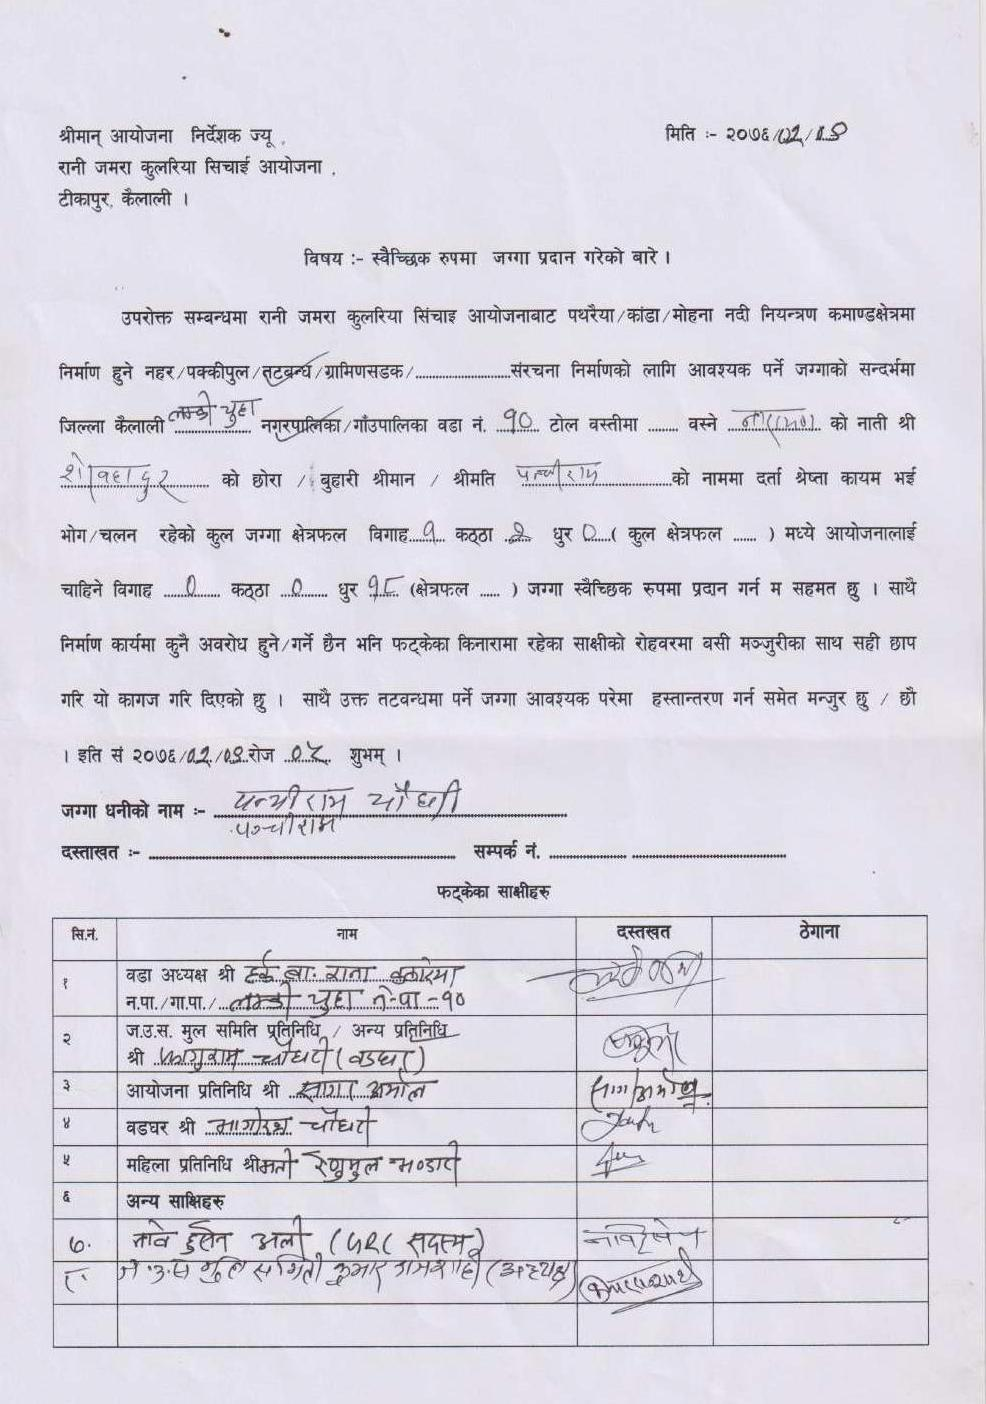 श्रीमान् आयोजना निर्देशक ज्यू , मिति :- २०७६/०२/
रानी जमरा कुलरिया सिचाई आयोजना ,
टीकापुर, कैलाली ।
विषय :- स्वैच्छिक रुपमा जग्गा प्रदान गरेको बारे ।
उपरोक्त सम्बन्धमा रानी जमरा कुलरिया सिंचाइ आयोजनाबाट पथरैया/कांडा/मोहना नदी नियन्त्रण कमाण्डक्षेत्रमा
निर्माण हुने नहर/पक्कीपुल/तटबन्ध/ग्रामिणसडक/........................संरचना निर्माणको लागि आवश्यक पर्ने जग्गाको सन्दर्भमा
जिल्ला कैलाली लम्की चुहा नगरपालिका/गाँउपालिका वडा नं. १० टोल वस्तीमा ........ वस्ने को नाती श्री
को छोरा / बुहारी श्रीमान / श्रीमति को नाममा दर्ता श्रेष्ता कायम भई
भोग/चलन रहेको कुल जग्गा क्षेत्रफल विगाह १ कठ्ठा धुर ० ( कुल क्षेत्रफल ...... ) मध्ये आयोजनालाई
चाहिने विगाह ० कठ्ठा ० धुर १८ (क्षेत्रफल ..... ) जग्गा स्वैच्छिक रुपमा प्रदान गर्न म सहमत छु । साथै
निर्माण कार्यमा कुनै अवरोध हुने/गर्ने छैन भनि फट्केका किनारामा रहेका साक्षीको रोहवरमा वसी मञ्जुरीका साथ सही छाप
गरि यो कागज गरि दिएको छु । साथै उक्त तटवन्धमा पर्ने जग्गा आवश्यक परेमा हस्तान्तरण गर्न समेत मन्जुर छु / छौ
। इति सं २०७६/०२/ रोज शुभम् ।
जग्गा धनीको नाम :- चौधरी
दस्ताखत :- सम्पर्क नं.
फट्केका साक्षीहरु
सि.नं. नाम दस्तखत ठेगाना
१ वडा अध्यक्ष श्री
न.पा./गा.पा./ लम्की चुहा न.पा -१०
२ ज.उ.स. मुल समिति प्रतिनिधि / अन्य प्रतिनिधि
श्री फागुराम चौधरी (वडघर)
३ आयोजना प्रतिनिधि श्री
४ वडघर श्री चौधरी
५ महिला प्रतिनिधि श्रीमती भण्डारी
६ अन्य साक्षिहरु
७. अली (GRC सदस्य)
८. ज.उ.स मुल समिती कुमार (अध्यक्ष)